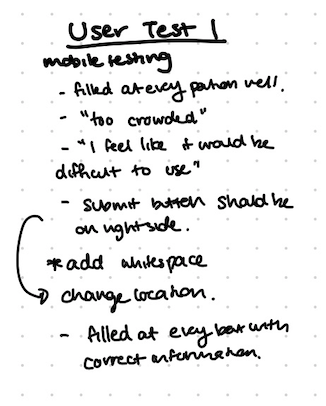 User Test 1
mobile testing
- filled at every portion well.
- "too crowded"
- "I feel like it would be
difficult to use"
- submit button should be
on right side.
* add whitespace
change location.
- filled at every box with
correct information.